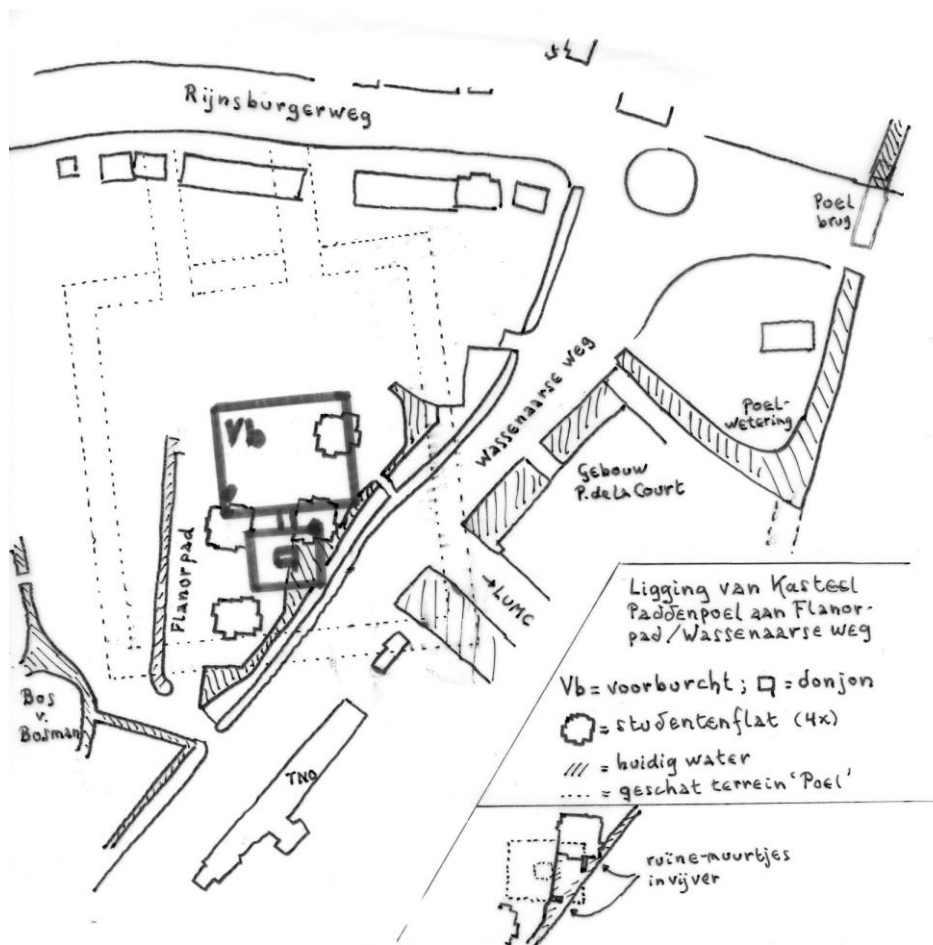 Rijnsburgerweg
Poel
brug
Wassenaarse weg
Poel-
wetering
Vb
Gebouw
P. de La Court
Flanorpad
→LUMC
Ligging van Kasteel
Paddenpoel aan Flanor-
pad/Wassenaarse weg
Vb = voorburcht; = donjon
= studentenflat (4x)
/// = huidig water
..... = geschat terrein 'Poel'
Bos
v.
Bosman
TNO
ruïne-muurtjes
in vijver